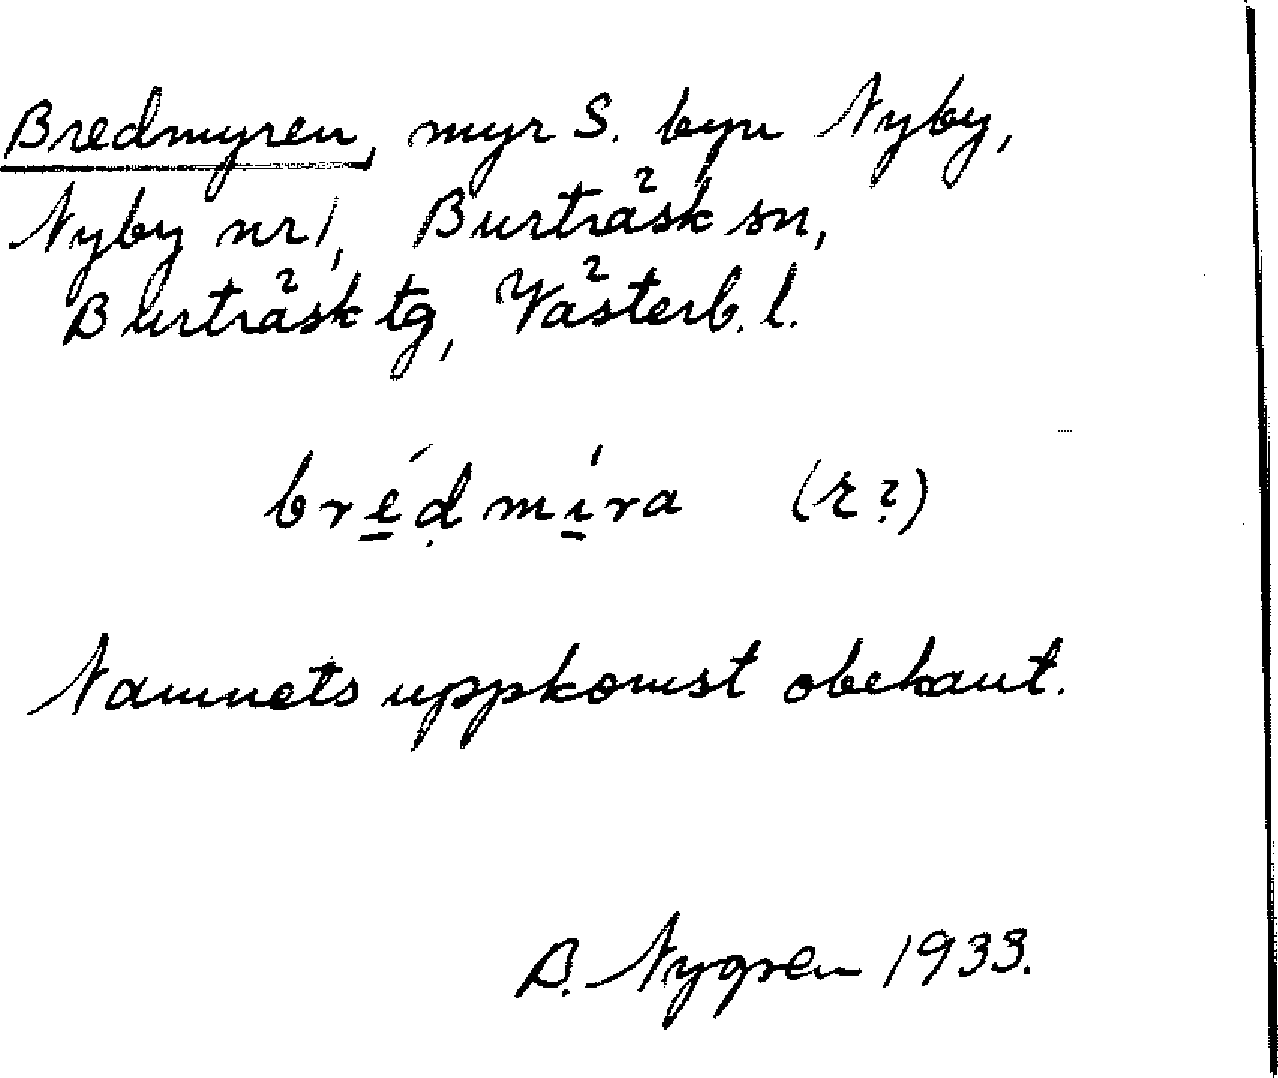 Bredmyren, myr S. byn Nyby,
Nyby nr 1, Burträsk sn,
Burträsk tg, Västerb. l.
bré̲ḍmí̲ra (r?)
Namnets uppkomst obekant.
B. Nygren 1933.